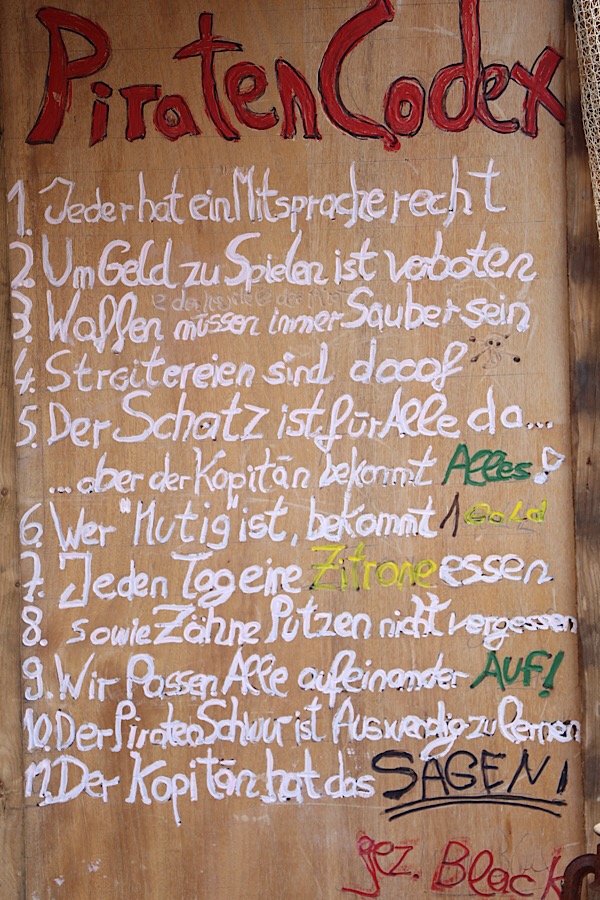 PiratenCodex
1. Jeder hat ein Mitspracherecht
2. Um Geld zu Spielen ist verboten
3. Waffen müssen immer Sauber sein
4. Streitereien sind dooof
5. Der Schatz ist für Alle da...
...aber der Kapitän bekommt Alles!
6. Wer "Mutig" ist, bekommt 1 Gold
7. Jeden Tag eine Zitrone essen
8. sowie Zähne Putzen nicht vergessen
9. Wir Passen Alle aufeinander AUF!
10. Der Piraten Schwur ist Auswendig zu lernen
11. Der Kapitän hat das SAGEN!
gez. Black